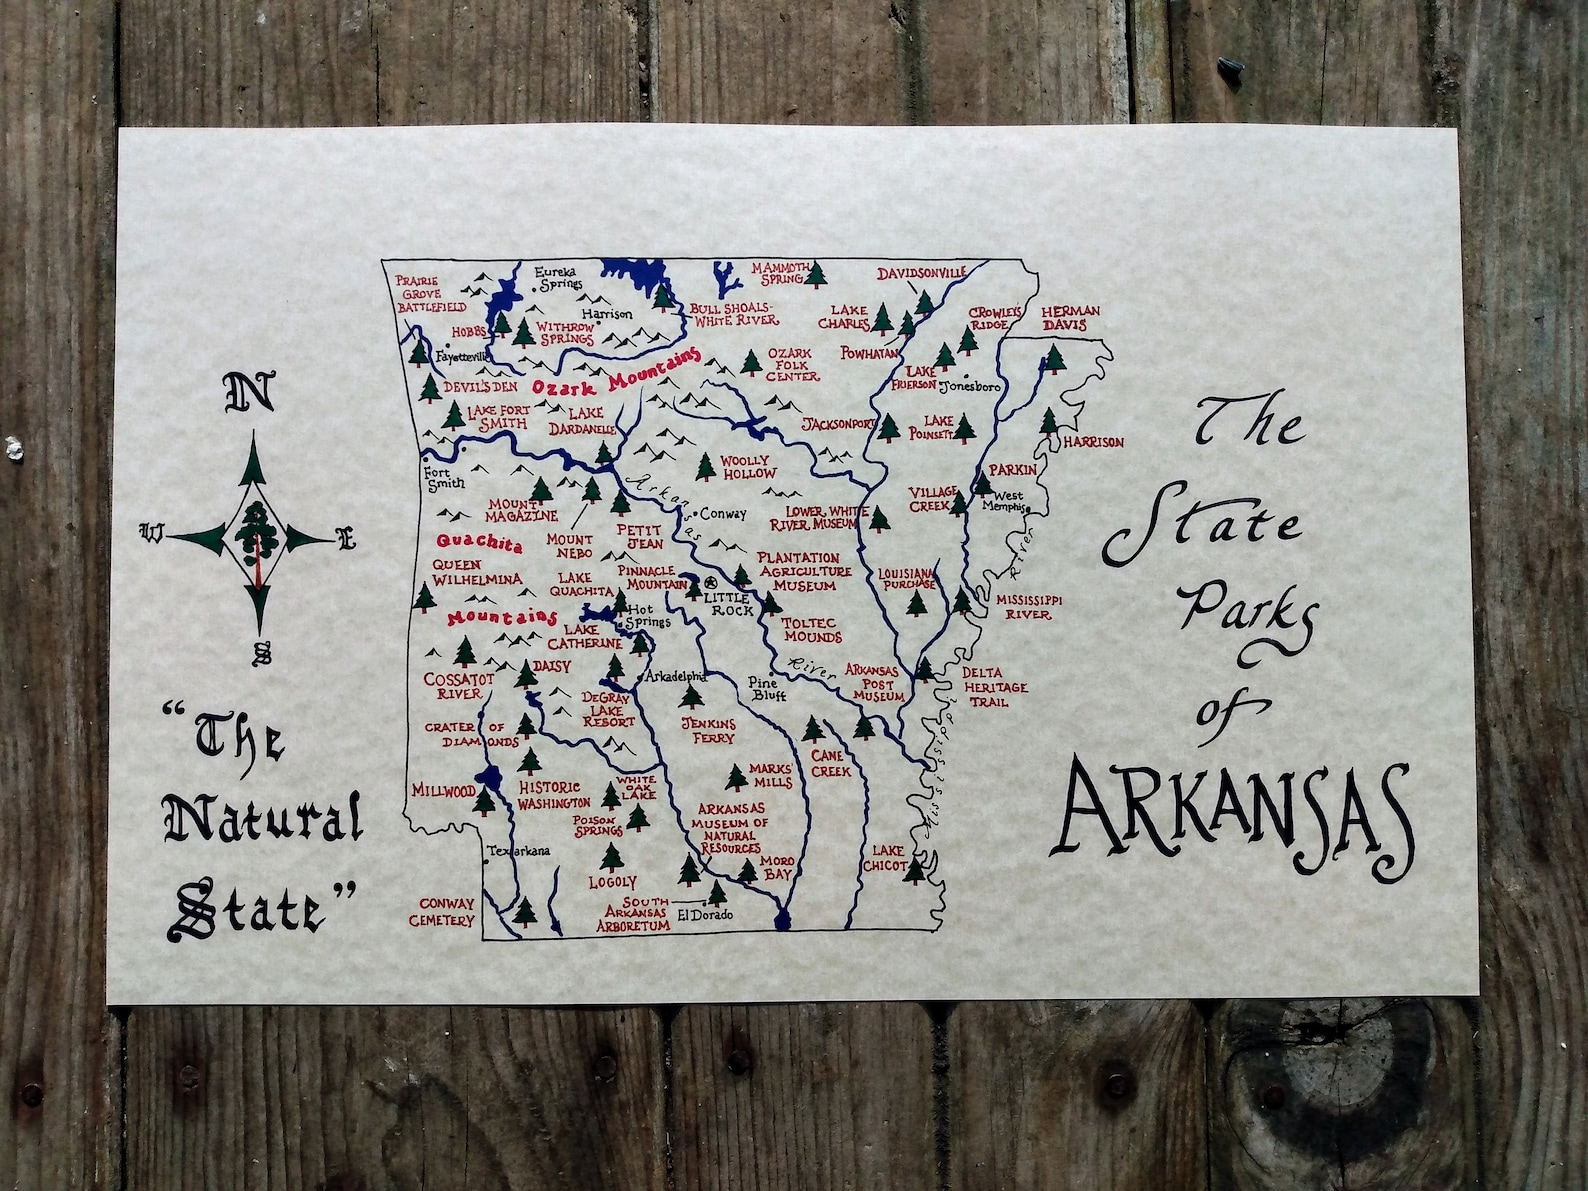 PRAIRIE
GROVE
BATTLEFIELD
Eureka
Springs
Harrison
HOBBS
WITHROW
SPRINGS
BULL SHOALS-
WHITE RIVER
MAMMOTH
SPRING
DAVIDSONVILLE
LAKE
CHARLES
POWHATAN
CROWLEY'S
RIDGE
HERMAN
DAVIS
Fayetteville
Ozark Mountains
OZARK
FOLK
CENTER
LAKE
FRIERSON
Jonesboro
DEVIL'S DEN
LAKE FORT
SMITH
LAKE
DARDANELLE
JACKSONPORT
LAKE
POINSETT
HARRISON
Fort
Smith
WOOLLY
HOLLOW
PARKIN
West
Memphis
VILLAGE
CREEK
MOUNT
MAGAZINE
MOUNT
NEBO
PETIT
JEAN
Arkansas
Conway
LOWER WHITE
RIVER MUSEUM
Ouachita
QUEEN
WILHELMINA
Mountains
LAKE
OUACHITA
PINNACLE
MOUNTAIN
LITTLE
ROCK
PLANTATION
AGRICULTURE
MUSEUM
LOUISIANA
PURCHASE
MISSISSIPPI
RIVER
River
Hot
Springs
TOLTEC
MOUNDS
LAKE
CATHERINE
COSSATOT
RIVER
DAISY
DEGRAY
LAKE
RESORT
Arkadelphia
JENKINS
FERRY
Pine
Bluff
River
ARKANSAS
POST
MUSEUM
DELTA
HERITAGE
TRAIL
Mississippi
CRATER OF
DIAMONDS
CANE
CREEK
MILLWOOD
HISTORIC
WASHINGTON
WHITE
OAK
LAKE
POISON
SPRINGS
MARKS'
MILLS
ARKANSAS
MUSEUM OF
NATURAL
RESOURCES
Texarkana
LOGOLY
MORO
BAY
LAKE
CHICOT
CONWAY
CEMETERY
SOUTH
ARKANSAS
ARBORETUM
El Dorado
N
W
E
S
"The
Natural
State"
The
State
Parks
of
ARKANSAS